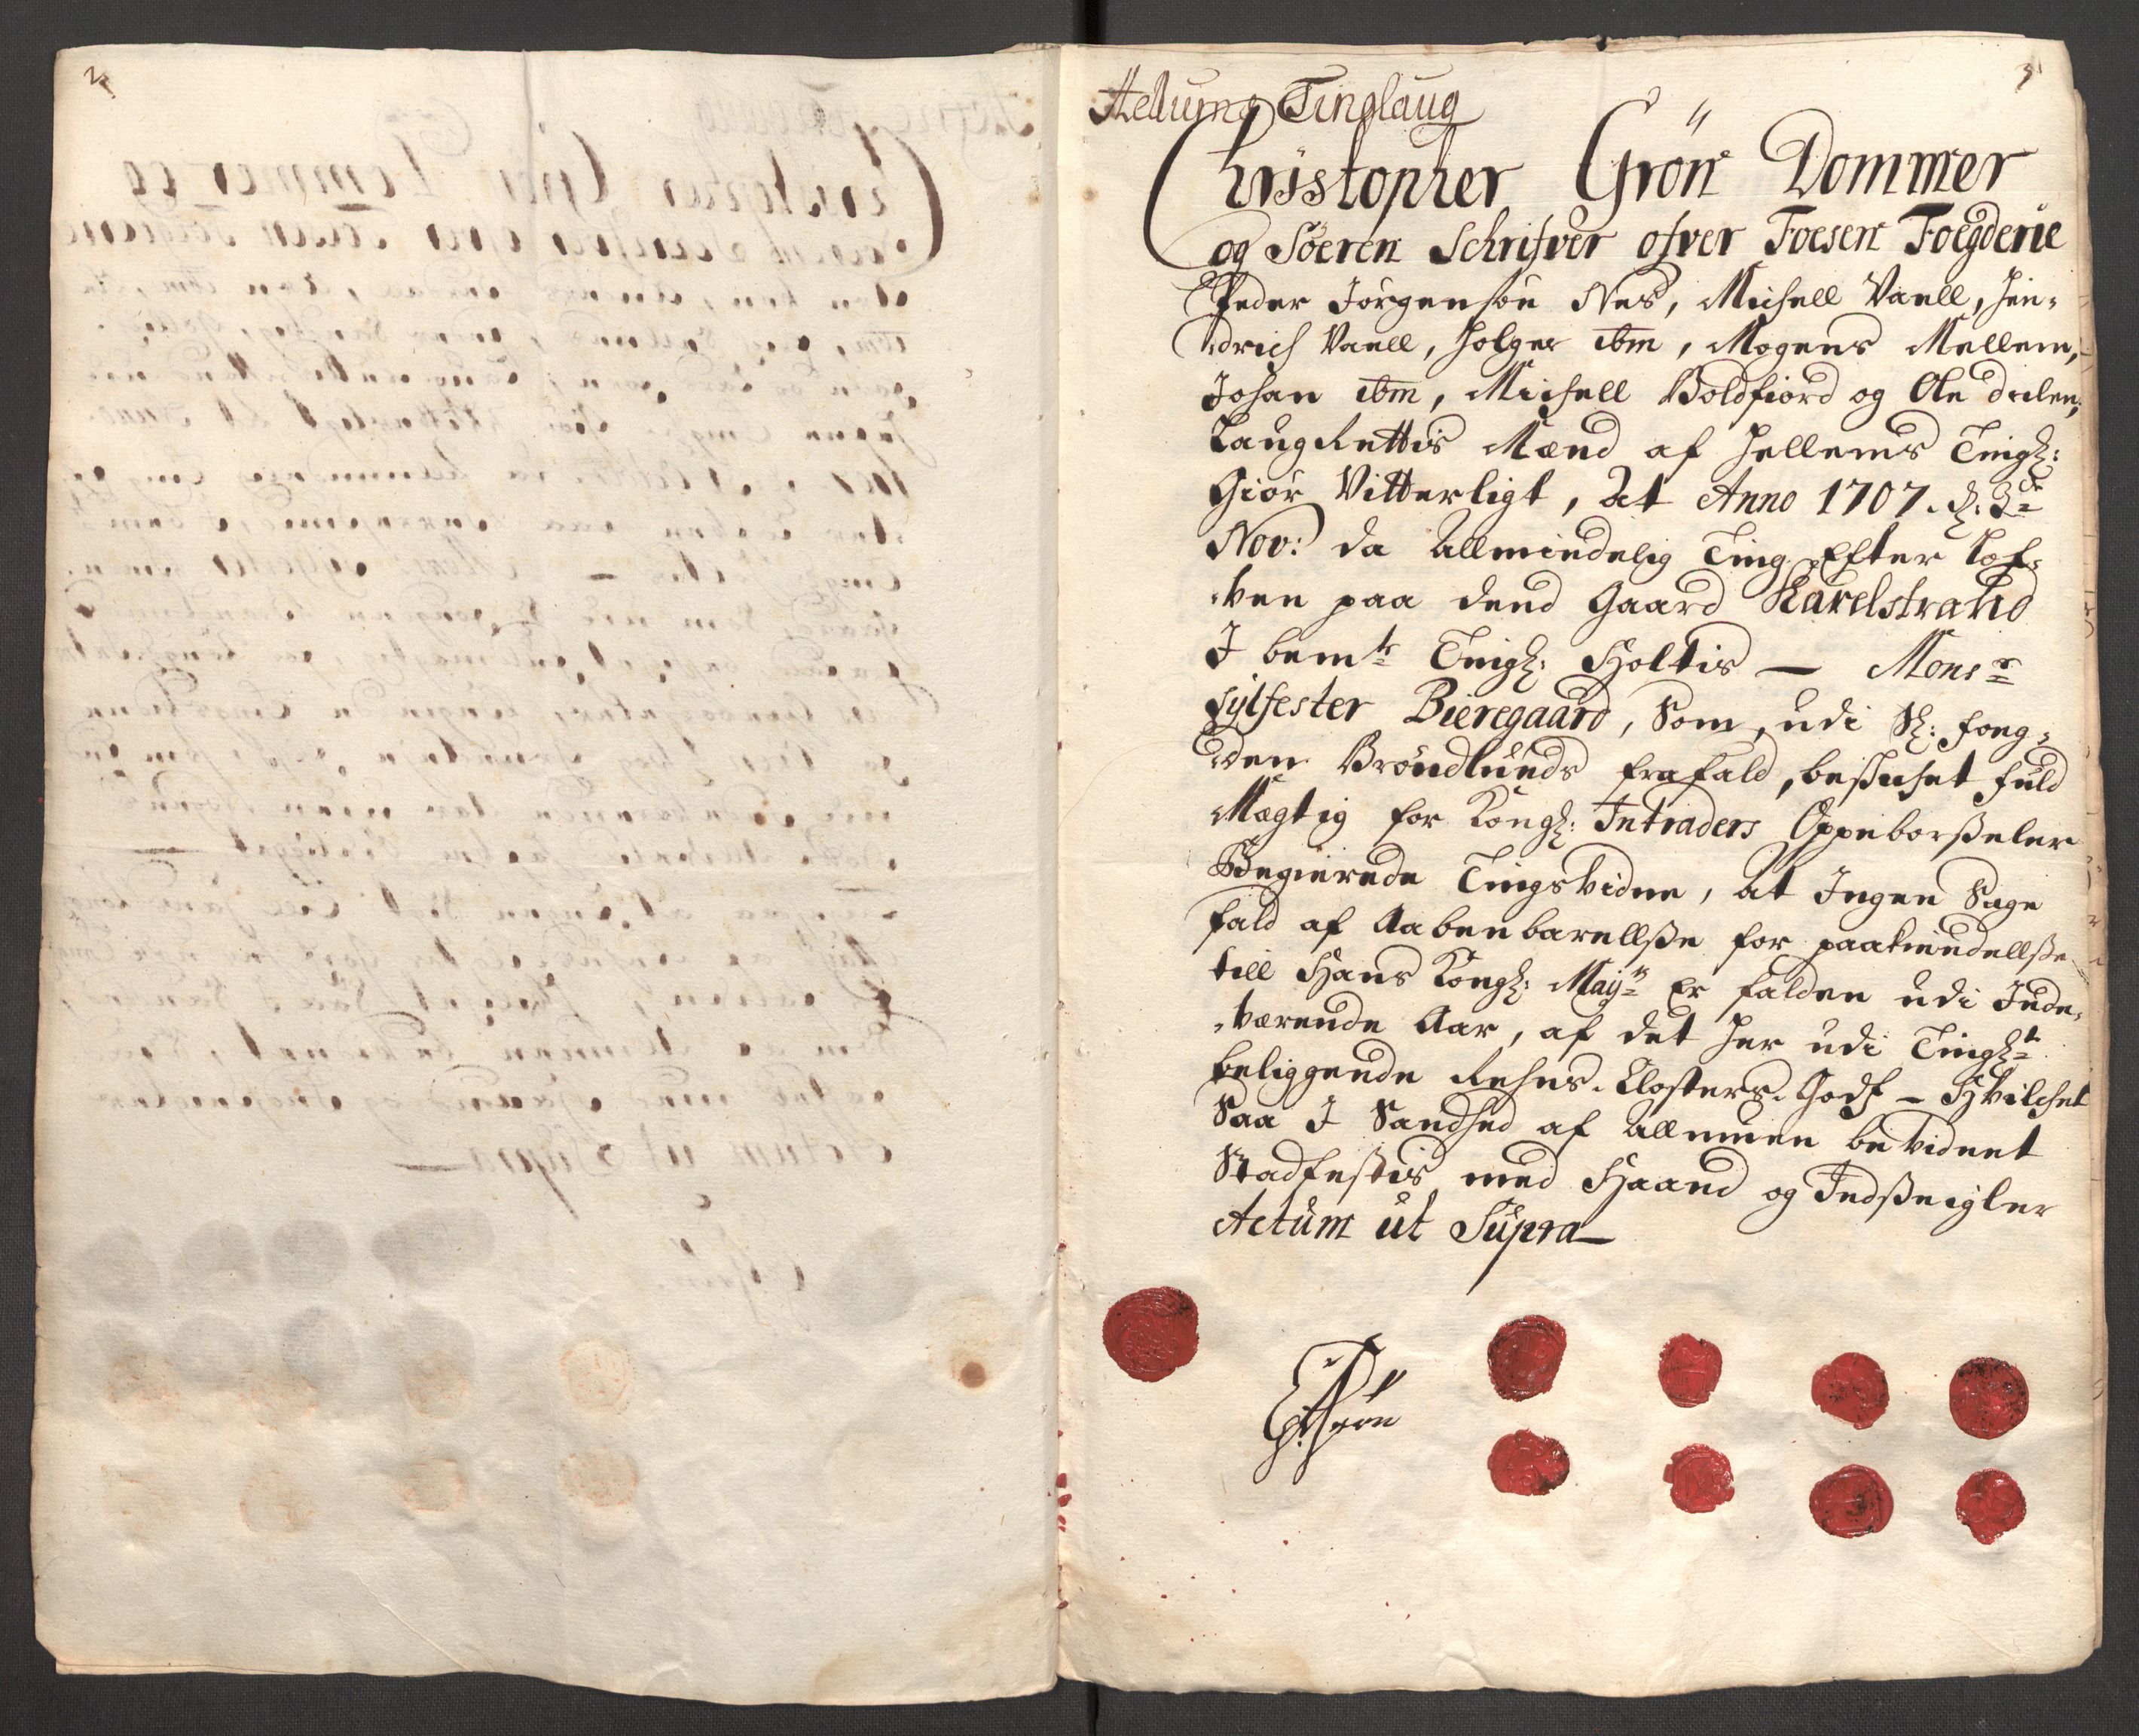 2
3
Hellums Tinglaug
Christopher Grön Dommer
og Söeren Schrifver ofver Foesen Foegderie
Peder Jörgensön Nes, Michell Vaell, Hen-
drich Vaell, Holger ibm, Mogens Mellem,
Johan ibm, Michell Boldfiord og Ole
Laugrettis Mænd af Hellems Tingl:
Giör Vitterligt, At Anno 1707. d: 3de
Nov: da Allmindelig Ting Efter Lof-
ven paa dend Gaard Karelstrand
I bemte Tingl: Holtis — Monsr
Sylfester Bieregaard, Som, udi Sl: foug-
den Bröndlunds frafald, beskichet fuld
Mægtig for Kongl: Intraders Oppeborsseler
Begierede Tingsvidne, At Ingen Sage
fald af Aabenbarellsse for paakiendellsse
till Hans Kongl: Mayts Er falden udi Inde-
værende Aar, af det her udi Tinglt
beliggende Rehns Closters Godß – Hvilchet
Saa I Sandhed af Allmuen bevidnet
Stadfestis med Haand og Indsseigler
Actum ut Supra —
CGrön